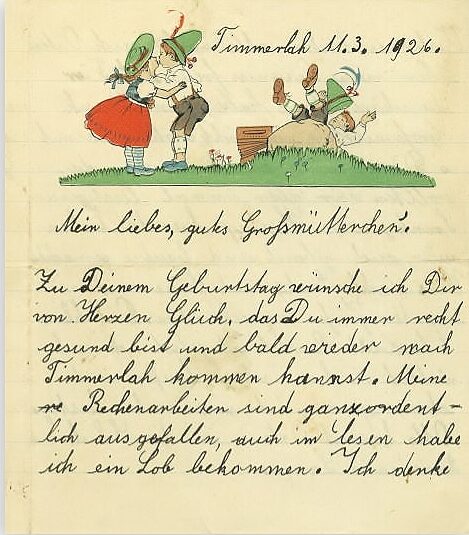 Timmerlah 11.3. 1926.
Mein liebes, gutes Großmütterchen!
Zu Deinem Geburtstag wünsche ich Dir
von Herzen Glück, das Du immer recht
gesund bist und bald wieder nach
Timmerlah kommen kannst. Meine
re Rechenarbeiten sind ganz ordent-
lich ausgefallen, auch im lesen habe
ich ein Lob bekommen. Ich denke